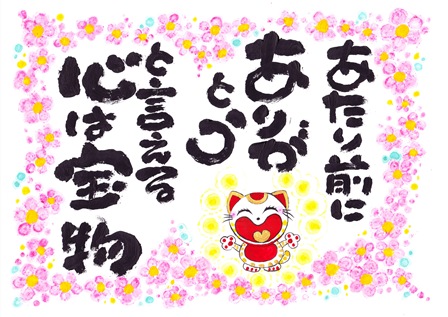 あたり前に
ありが
とう
と言える
心は宝物